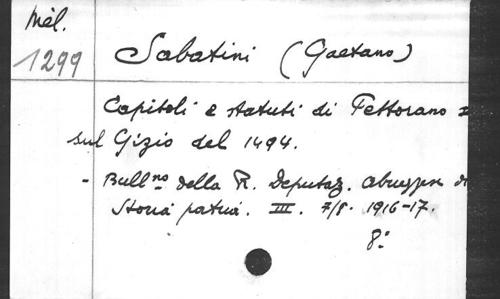 Mél.
1299
Sabatini (Gaetano)
Capitoli e statuti di Pettorano
sul Gizio del 1494.
- Bull.no della R. Deputaz. abruzzese di
Storia patria. III. 7/8. 1916-17.
8: